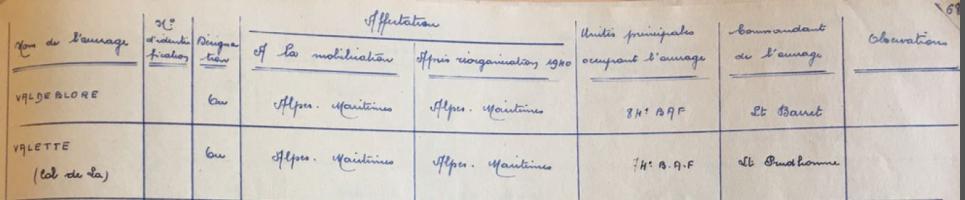 68
Affectation
Nom de l'ouvrage
N° d'identification
Désignation
A la mobilisation
Après réorganisation 1940
Unités principales occupant l'ouvrage
Commandant de l'ouvrage
Observations
VALDEBLORE Alpes. Maritimes Alpes. Maritimes 84e BAF Lt Barret
VALETTE Alpes. Maritimes Alpes. Maritimes 74e B.A.F Lt Prudhomme
(Col de la)